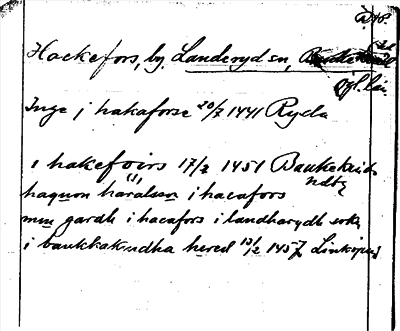 Hackefors, by, Landeryd sn,
ögl. län
Inge j hakaforse 20/7 1441 Ryda
i hakefoirs 17/2 1451 Bankekinds
ndtg
haquon haralsson i hacafors
min gardh i hacafors i landharydh sokn
i bankhakindha hered 13/2 1457 Linköping